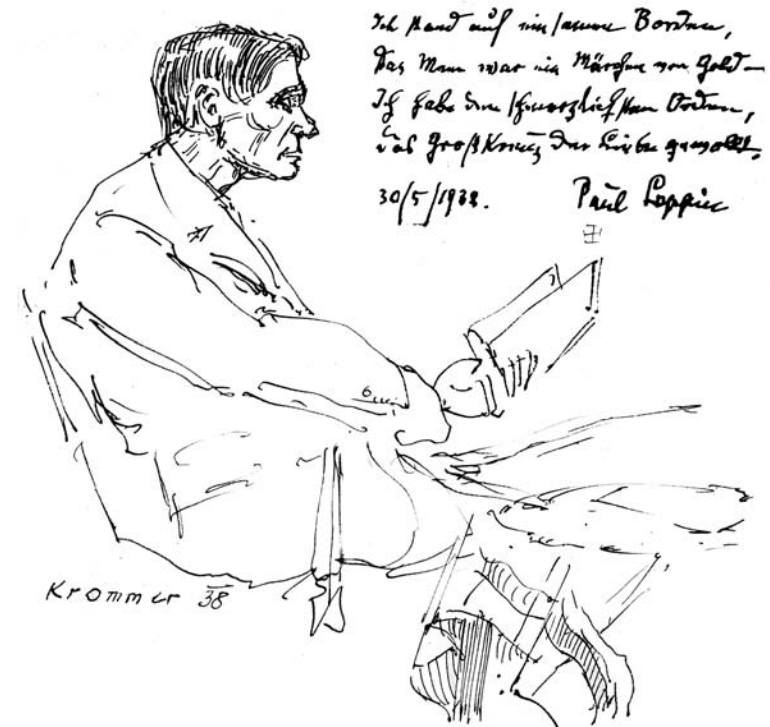 Ich stand auf einsamen Borden,
Das Meer war ein Märchen von Gold –
Ich habe den schmerzlichsten Orden,
das Großkreuz der Liebe gewollt.
30/5/1938. Paul Leppin
Krommer 38